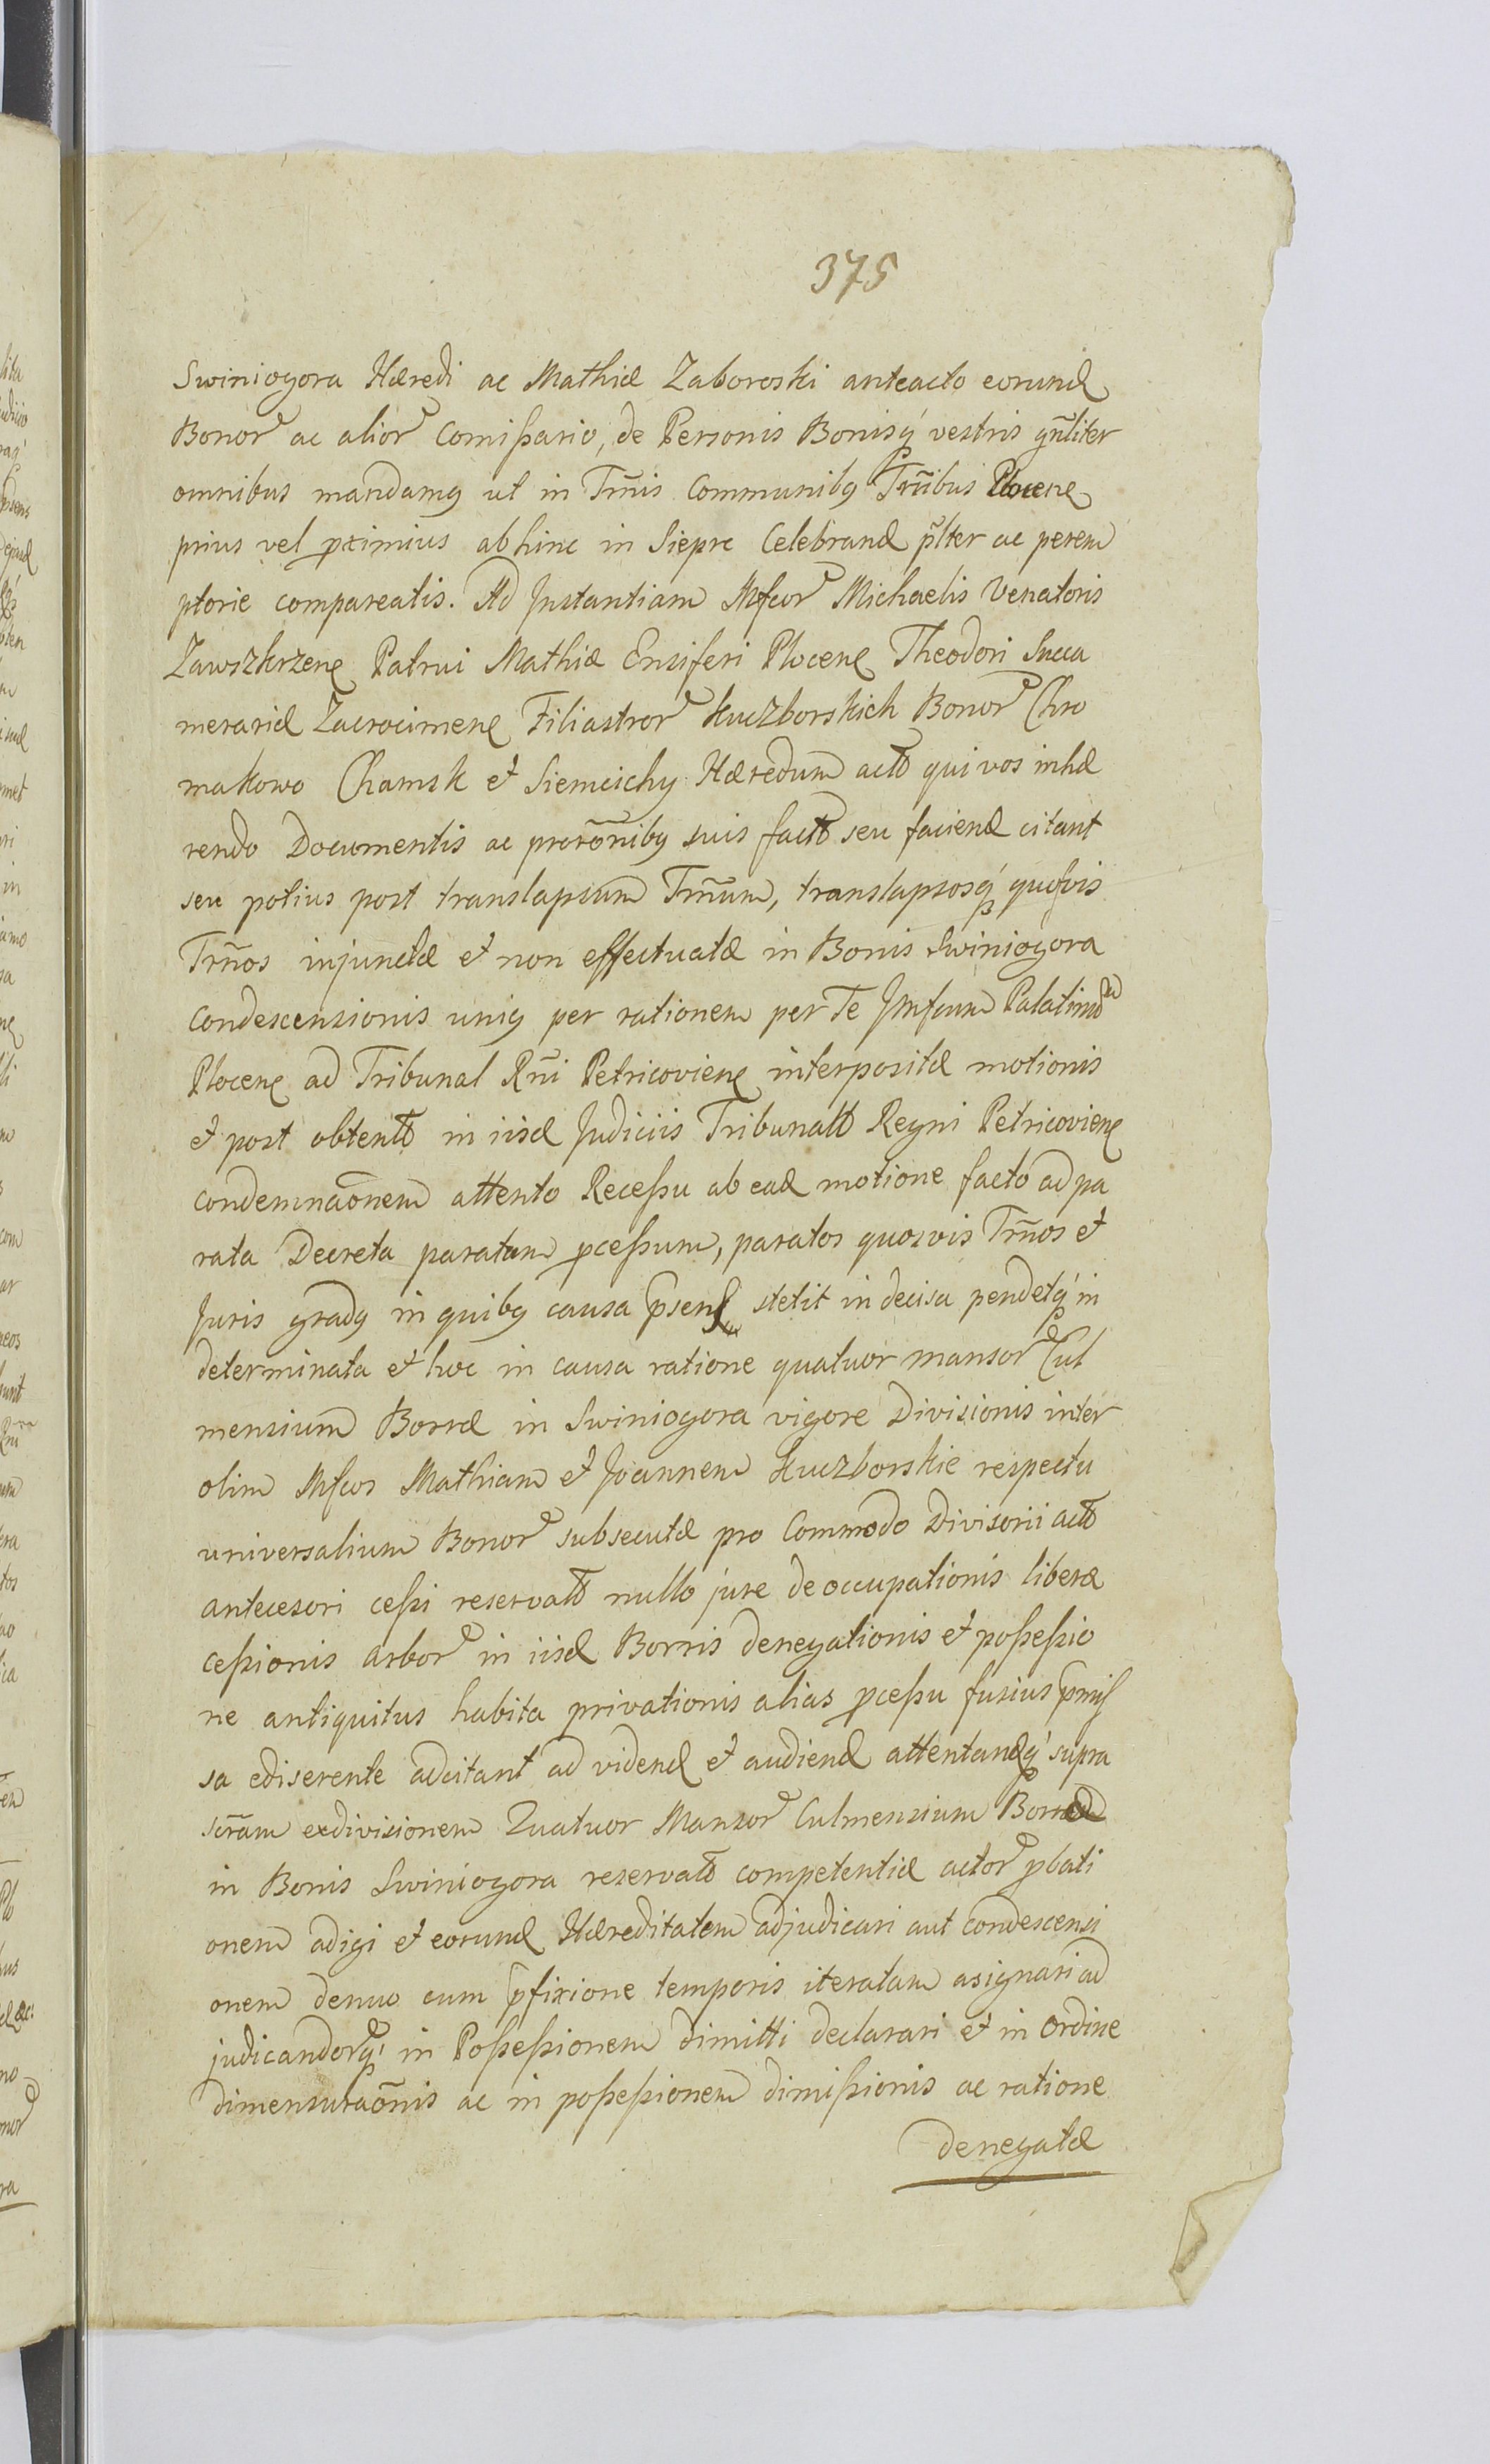 375
Swiniogora Hæredi ac Mathiæ Zaboroski anteacto eorund
Bonor ac alior Comißario, de Personis Bonisq́ vestris gñliter
omnibus mandamq ut in Trñis Communibq Trñibus Plocen
prius vel pximius abhinc in Sieprc Celebrand p̃lter ac perem
ptorie compareatis. Ad Instantiam Mfcor Michaelis Venatoris
Zawszkrzen Patrui Mathiæ Ensiferi Plocen Theodori Succa
merarid Zacrocimen Filiastror Kuczborskich Bonor Chro
makowo Chamsk et Siemcichy Hæredum act qui vos inhæ
rendo Documentis ac procõnibq suis fact seu faciend citant
seu potius post translapsum Trñum, translapsosq́ quosvis
Trños injunctæ et non effectuatæ in Bonis Swiniogora
condescensionis uniq per rationem per Te Jmfcum Palatinid
Plocen ad Tribunal Rñi Petricovien interpositæ motionis
et post obtent in iisd Judiciis Tribunalt Regni Petricovien
condemnaõnem attento Receßu ab ead motione facto ad pa
rata Decreta paratam pceßum, paratos quosvis Trños et
Juris gradq in quibq causa psens stetit indecisa pendetq́ in
determinata et hoc in causa ratione quatuor mansor Cul
mensium Borræ in Swiniogora vigore Divisionis inter
olim Mfcos Mathiam et Joannem Kuczborskie respectu
universalium Bonor subsecutæ pro Commodo Divisorii act
antecesori ceßi reservatt nullo jure de occupationis liberæ
ceßionis arbor in iisd Borris denegationis et poßeßio
ne antiquitus habita privationis alias pceßu fusius pmis
sa ediserente adcitant ad vidend et audiend attentandq́ supra
scr̃am exdivisionem Quatuor Mansor Culmensium Borræ
in Bonis Swiniogora reservatt competentiæ actor pbati
onem adigi et eorund Hæreditatem adjudicari aut Condescensi
onem denuo cum pfixione temporis iteratam asignari ad
judicandorq́ in Poßeßionem dimitti declarari et in Ordine
dimensuraõnis ac in poßeßionem dimißionis ac ratione
denegatæ